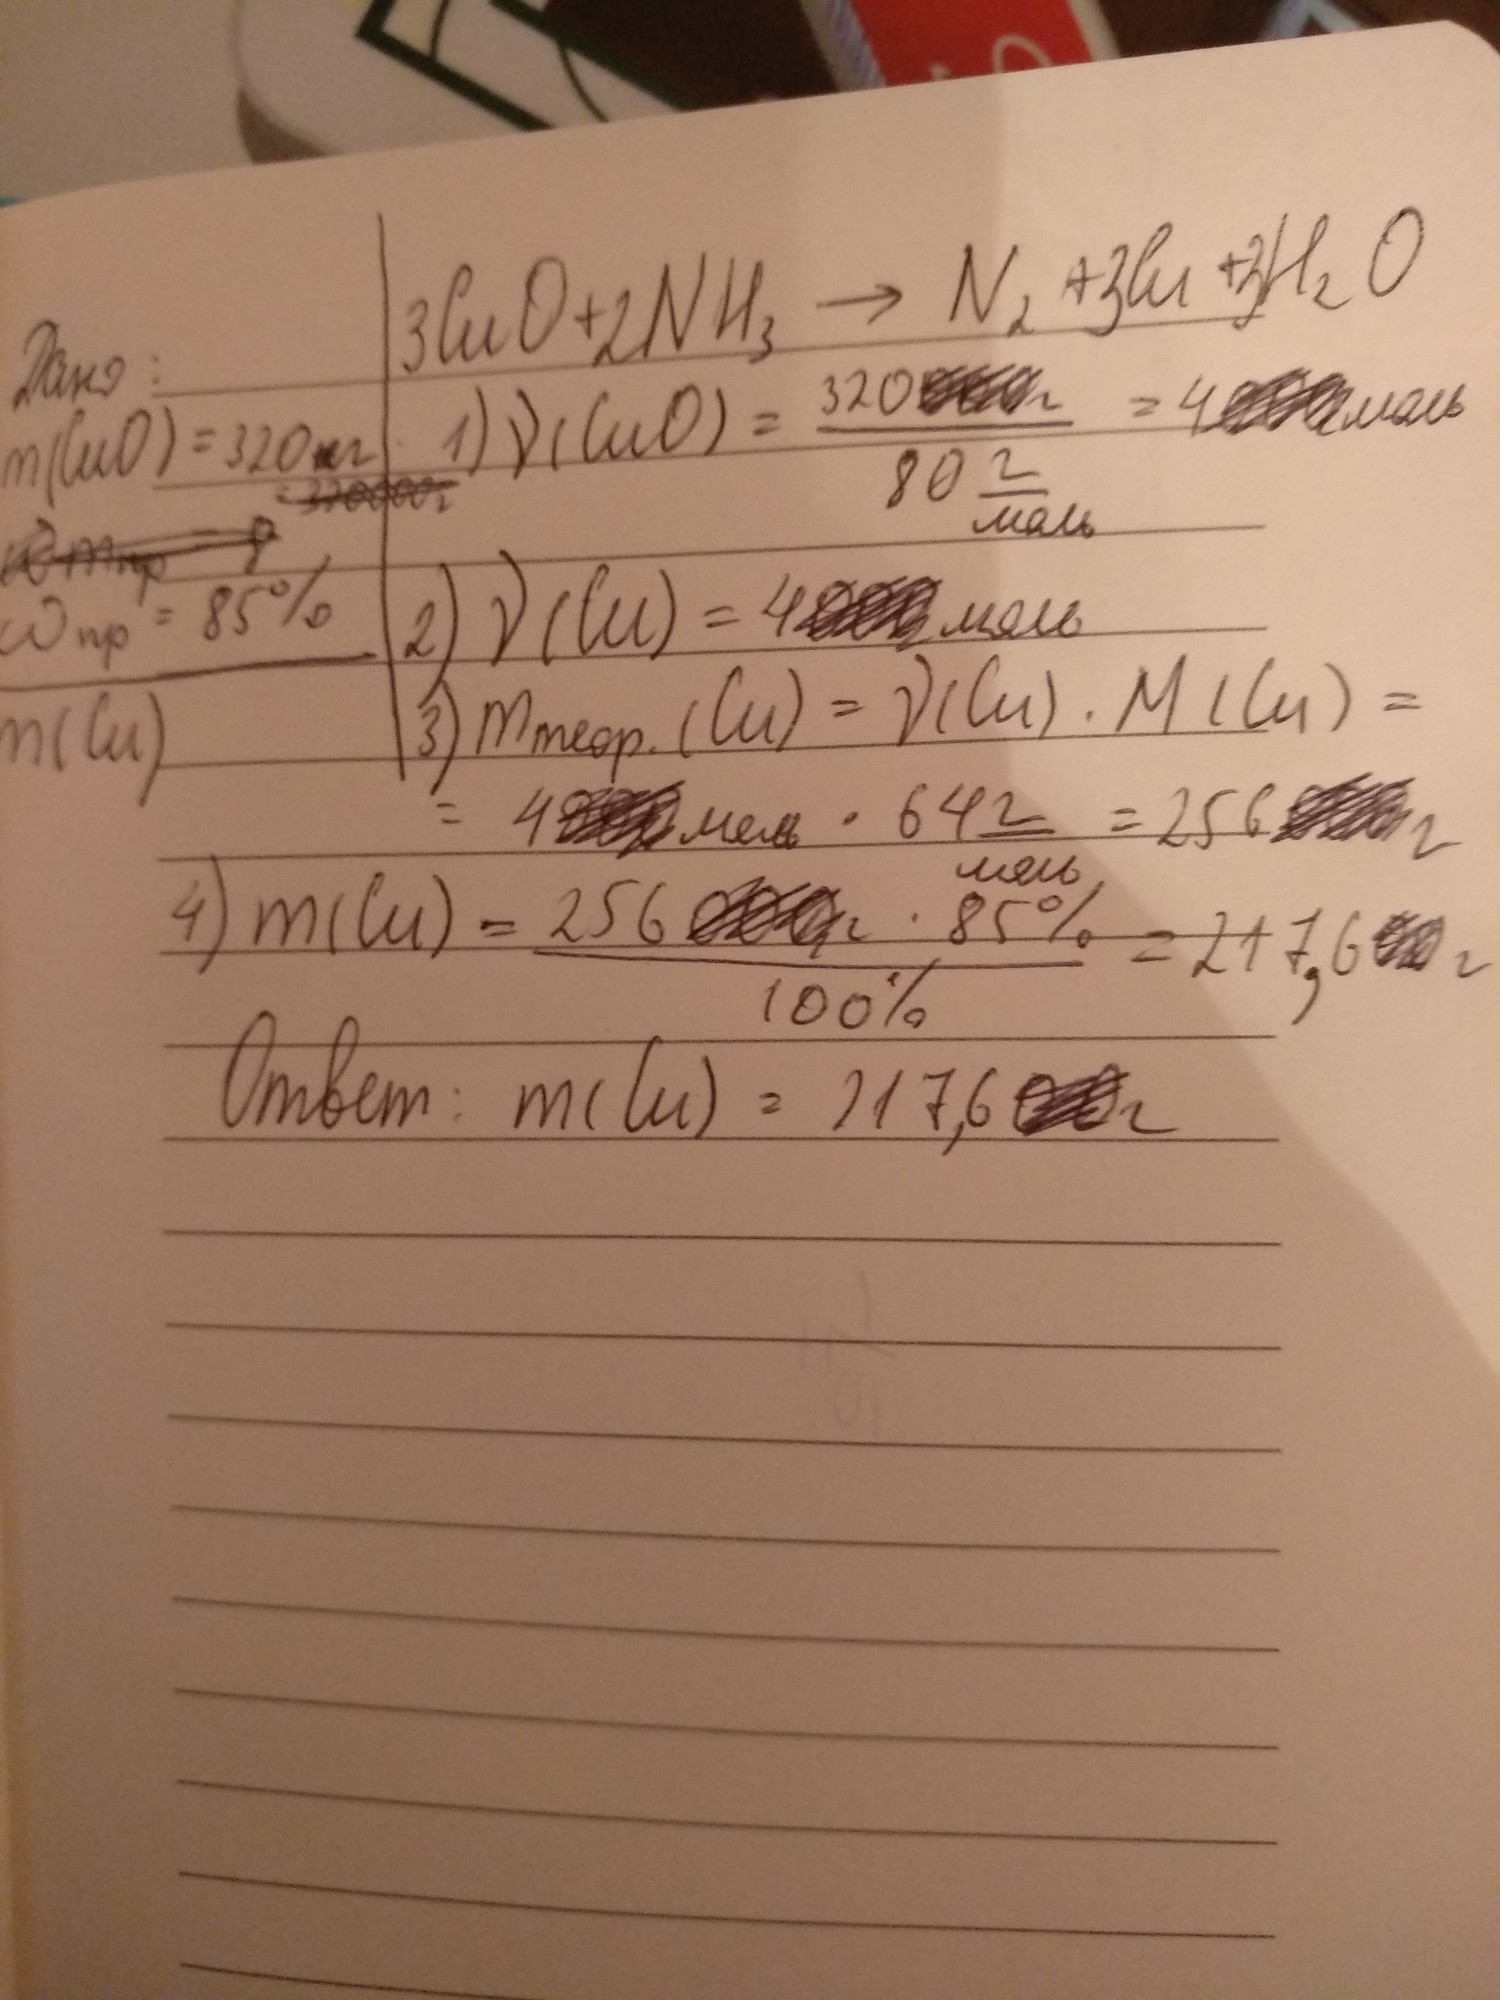 Дано:
m(CuO) = 320 г
ωпр = 85%
m(Cu)
3CuO + 2NH₃ → N₂ + 3Cu + 3H₂O
1) ν(CuO) = 320 г / 80 г/моль = 4 моль
2) ν(Cu) = 4 моль
3) mтеор.(Cu) = ν(Cu) · M(Cu) =
= 4 моль · 64 г/моль = 256 г
4) m(Cu) = 256 г · 85% / 100% = 217,6 г
Ответ: m(Cu) = 217,6 г